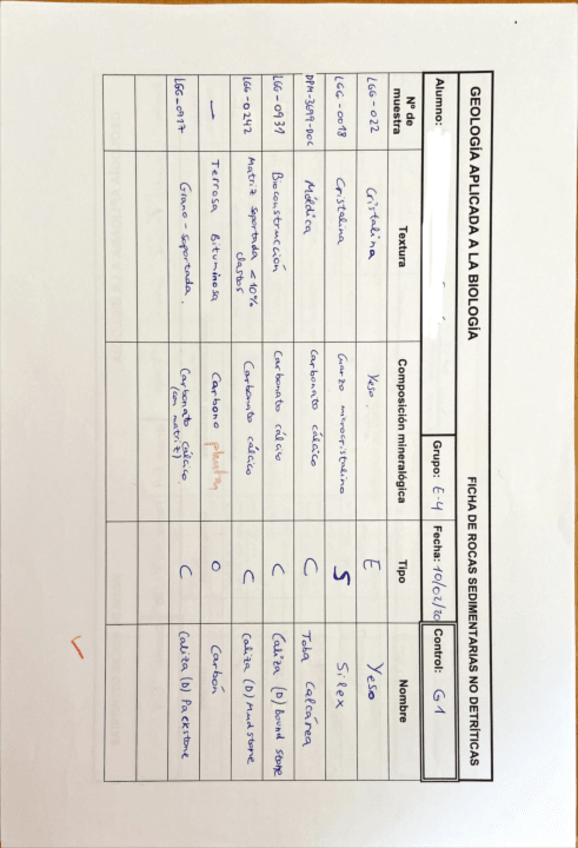 GEOLOGÍA APLICADA A LA BIOLOGÍA FICHA DE ROCAS SEDIMENTARIAS NO DETRÍTICAS
Alumno: Grupo: E-4 Fecha: 10/02/20 Control: G1
Nº de muestra Textura Composición mineralógica Tipo Nombre
LGG-022 Cristalina Yeso. E Yeso
LGG-0018 Cristalina Cuarzo microcristalino S Silex
DPM-3699-DOC Móldica Carbonato cálcico C Toba Calcárea
LGG-0931 Bioconstrucción Carbonato cálcico C Caliza (D) Bound stone
LGG-0242 Matriz soportada < 10% clastos Carbonato cálcico C Caliza (D) Mudstone
— Terrosa Bituminosa Carbono plantas O Carbón
LGG-0917 Grano-soportada. Carbonato cálcico. (con matriz) C Caliza (D) Packstone